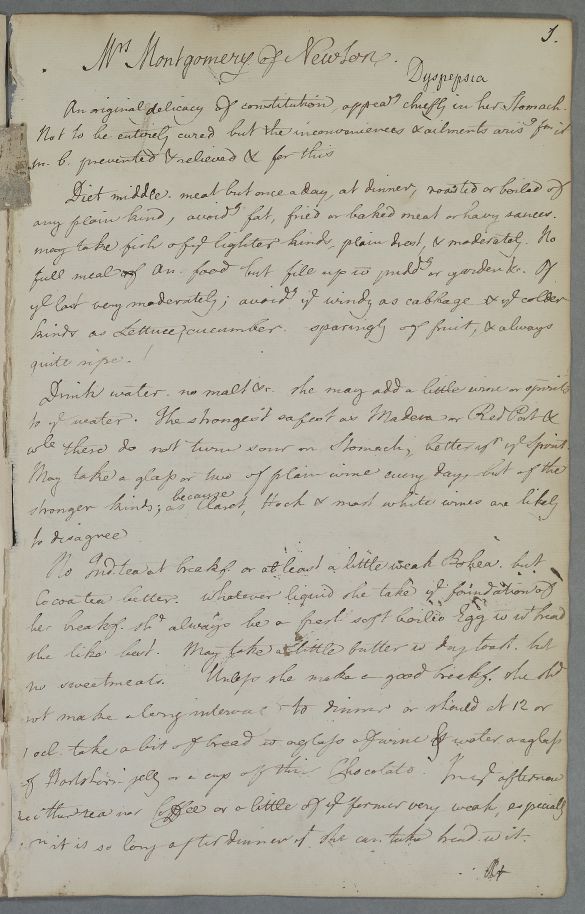 1.
Mrs Montgomery of Newton.
Dyspepsia
An original delicacy of constitution, appeag chiefly in her Stomach.
Not to be entirely cured but the inconveniences & ailments arisg from it
m. b. prevented & relieved & for this
Diet middle. meat but once a day, at dinner, roasted or boiled of
any plain kind, avoidg fat, fried or baked meat or havy sauces.
may take fish of ye lighter kinds, plain drest, & moderately. No
full meal of An. food but fill up wt puddg or garden &c. Of
ye last very moderately; avoidg ye windy as cabbage & ye colder
kinds as Lettuce, cucumber. sparingly of fruit, & always
quite ripe.
Drink water. no malt &c. she may add a little wine or spirits
to ye water. The strongest safest as Madeira or Red Port &
wle these do not turn sour on Stomach, better yn ye Spirit.
May take a glass or two of plain wine every day, but of the
stronger kinds; as because Claret, Hock & most white wines are likely
to disagree
No Ind. tea at breakf. or at least a little weak Bohea. but
Cocoa tea better. Whatever liquid she take ye foundation of
her breakf. shd always be a fresh soft boiled Egg wt wt bread
she like best. May take a little butter wt dry toast. but
no sweetmeats. Unless she make a good breakf. she shd
not make a long interval to dinner or should at 12 or
1 ocl. take a bit of bread wt a glass of wine & water a glass
of Hartshorn jelly or a cup of thin Chocolate. In ye afternoon
neither tea nor Coffee or a little of ye former very weak, especially
it is so long after dinner yt she can take bread wt it.
At